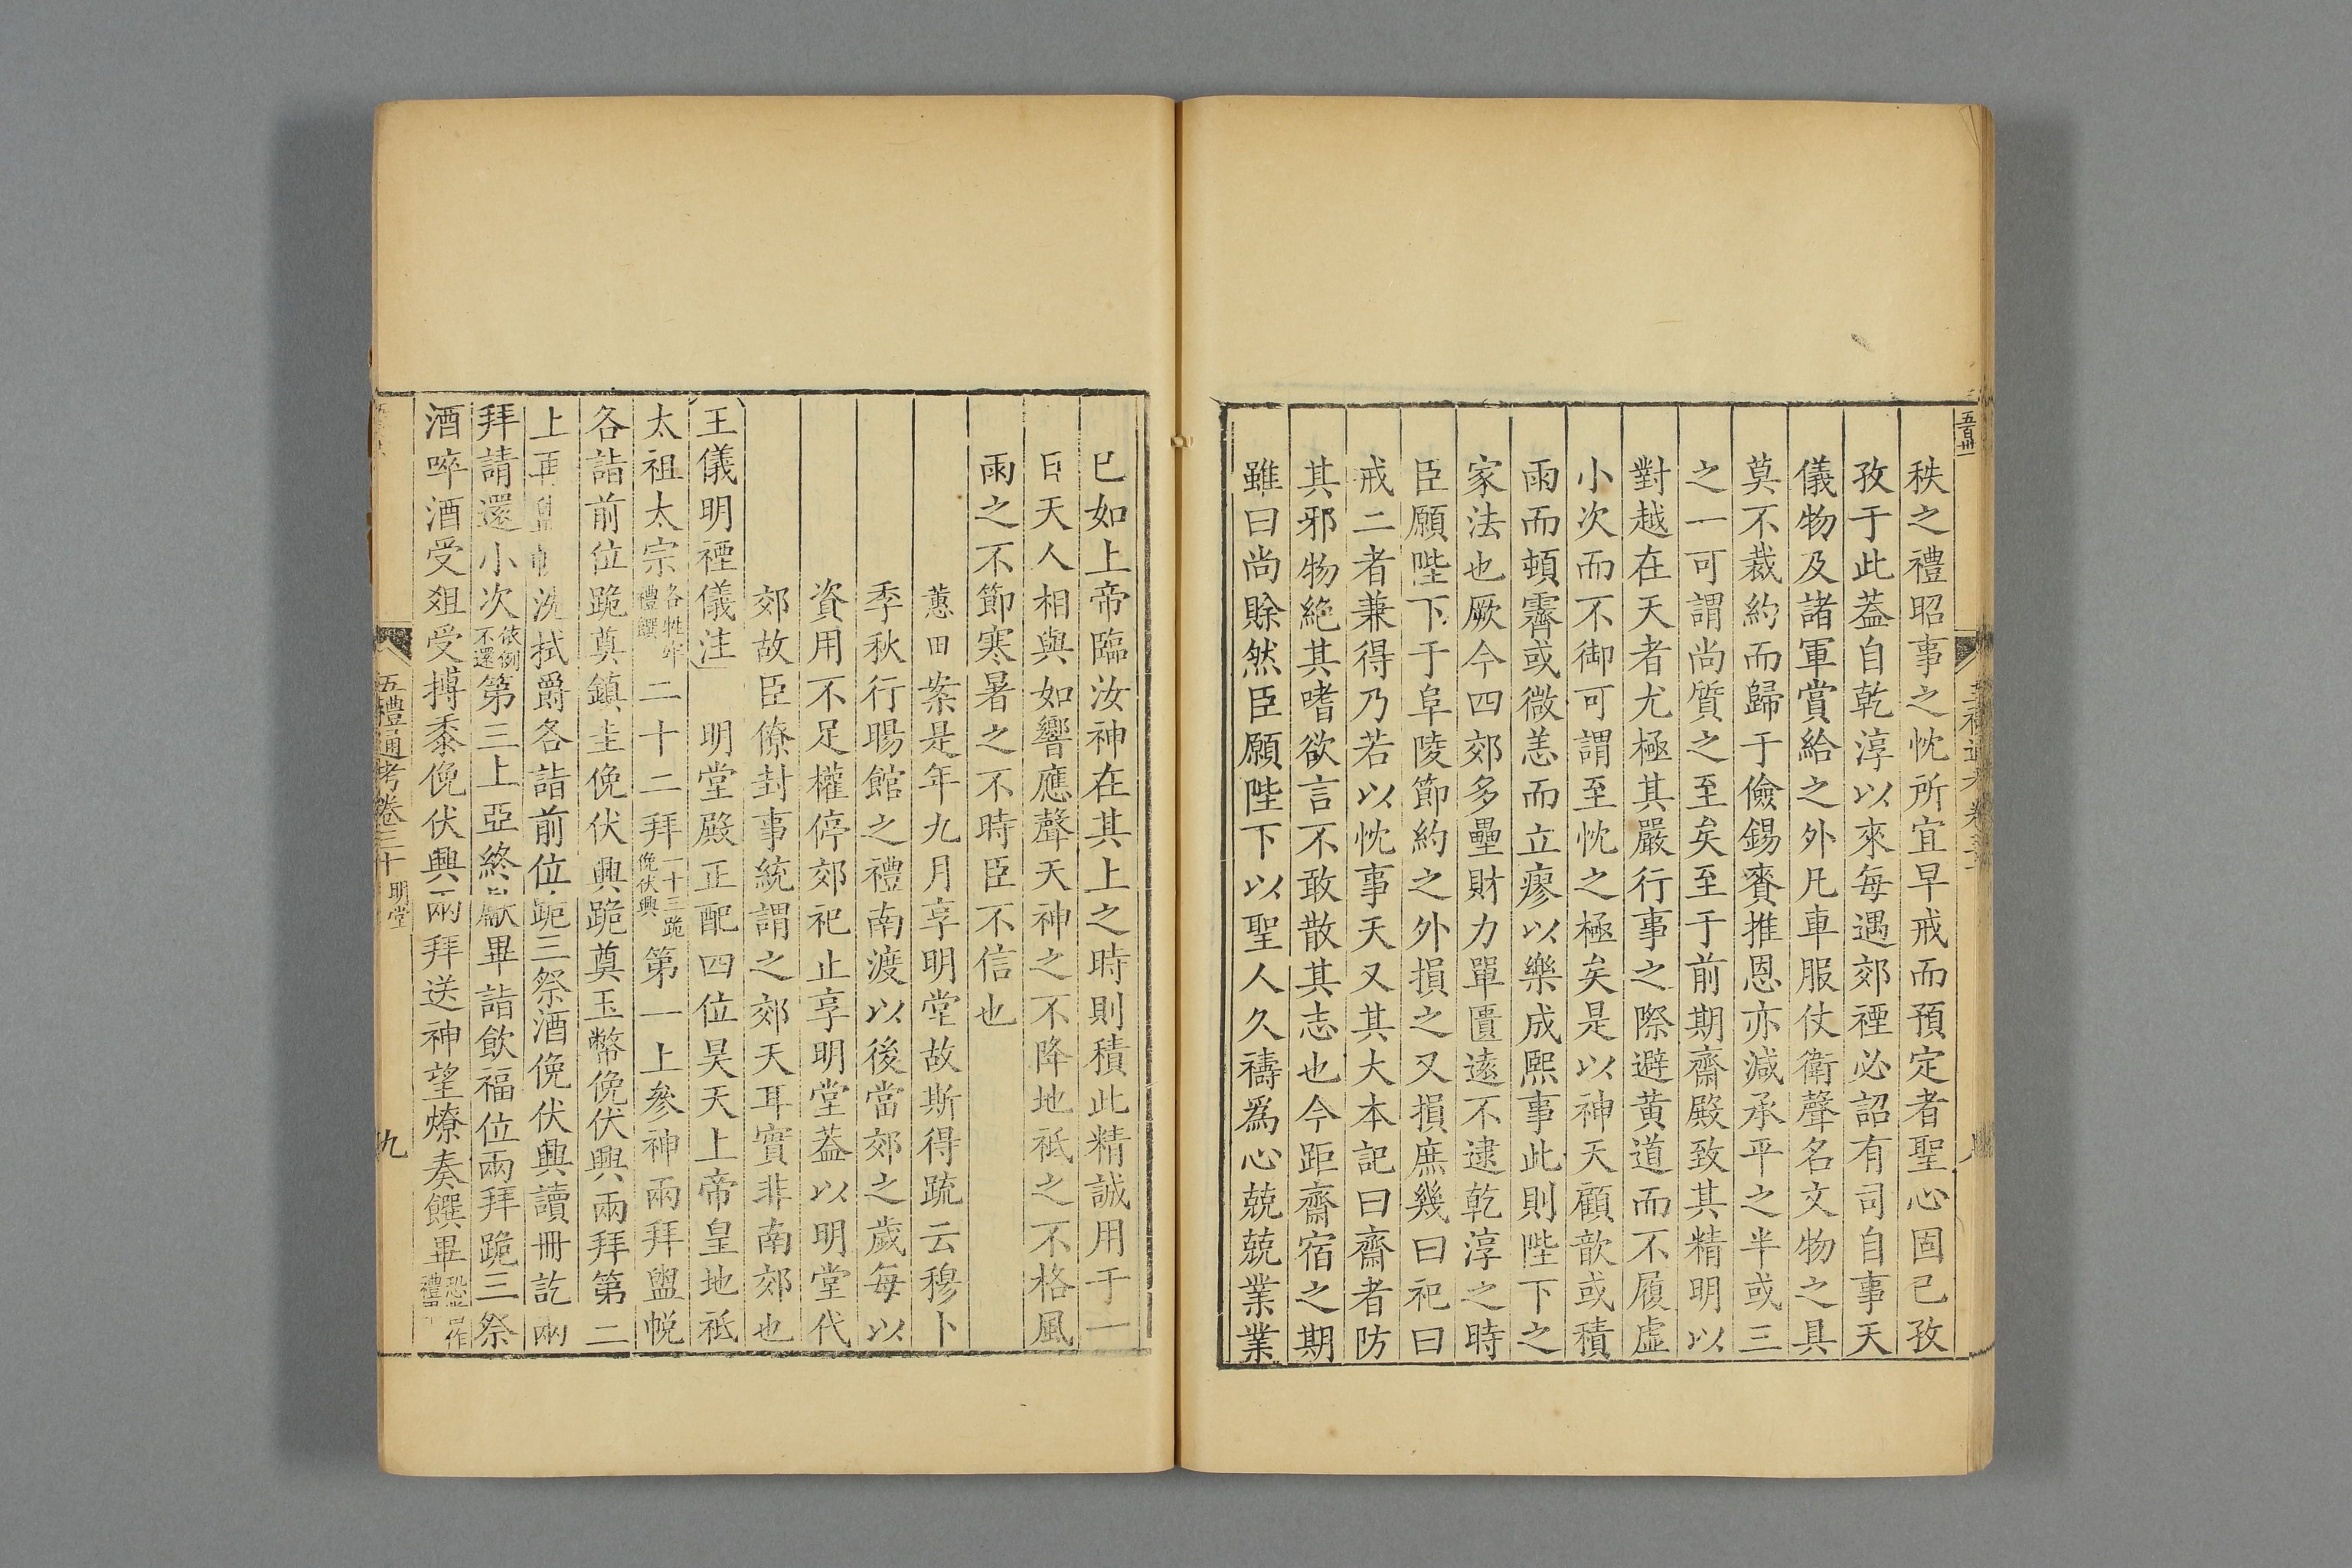 五百卌一
秩之禮昭事之忱所宜早戒而預定者聖心固已孜
孜于此蓋自乾淳以來每遇郊禋必詔有司自事天
儀物及諸軍賞給之外凡車服仗衛聲名文物之具
莫不裁約而歸于儉錫賚推恩亦減承平之半或三
之一可謂尚質之至矣至于前期齋殿致其精明以
對越在天者尤極其嚴行事之際避黃道而不履虛
小次而不御可謂至忱之極矣是以神天顧歆或積
雨而頓霽或微恙而立瘳以樂成熙事此則陛下之
家法也厥今四郊多壘財力單匱遠不逮乾淳之時
臣願陛下于阜陵節約之外損之又損庶幾曰祀曰
戒二者兼得乃若以忱事天又其大本記曰齋者防
其邪物絕其嗜欲言不敢散其志也今距齋宿之期
雖曰尚賒然臣願陛下以聖人久禱爲心兢兢業業
已如上帝臨汝神在其上之時則積此精誠用于一
日天人相與如響應聲天神之不降地祇之不格風
雨之不節寒暑之不時臣不信也
蕙田案是年九月享明堂故斯得疏云穆卜
季秋行暘館之禮南渡以後當郊之歲每以
資用不足權停郊祀止享明堂蓋以明堂代
郊故臣僚封事統謂之郊天耳實非南郊也
王儀明禋儀注　明堂殿正配四位昊天上帝皇地祇
太祖太宗各牲牢禮饌二十二拜一十三跪俛伏興第一上參神兩拜盥帨
各詣前位跪奠鎮圭俛伏興跪奠玉幣俛伏興兩拜第二
上再盥帨洗拭爵各詣前位跪三祭酒俛伏興讀冊訖兩
拜請還小次依例不還第三上亞終獻畢詣飲福位兩拜跪三祭
酒啐酒受爼受摶黍俛伏興兩拜送神望燎奏饌畢
五禮通考卷三十 明堂
九